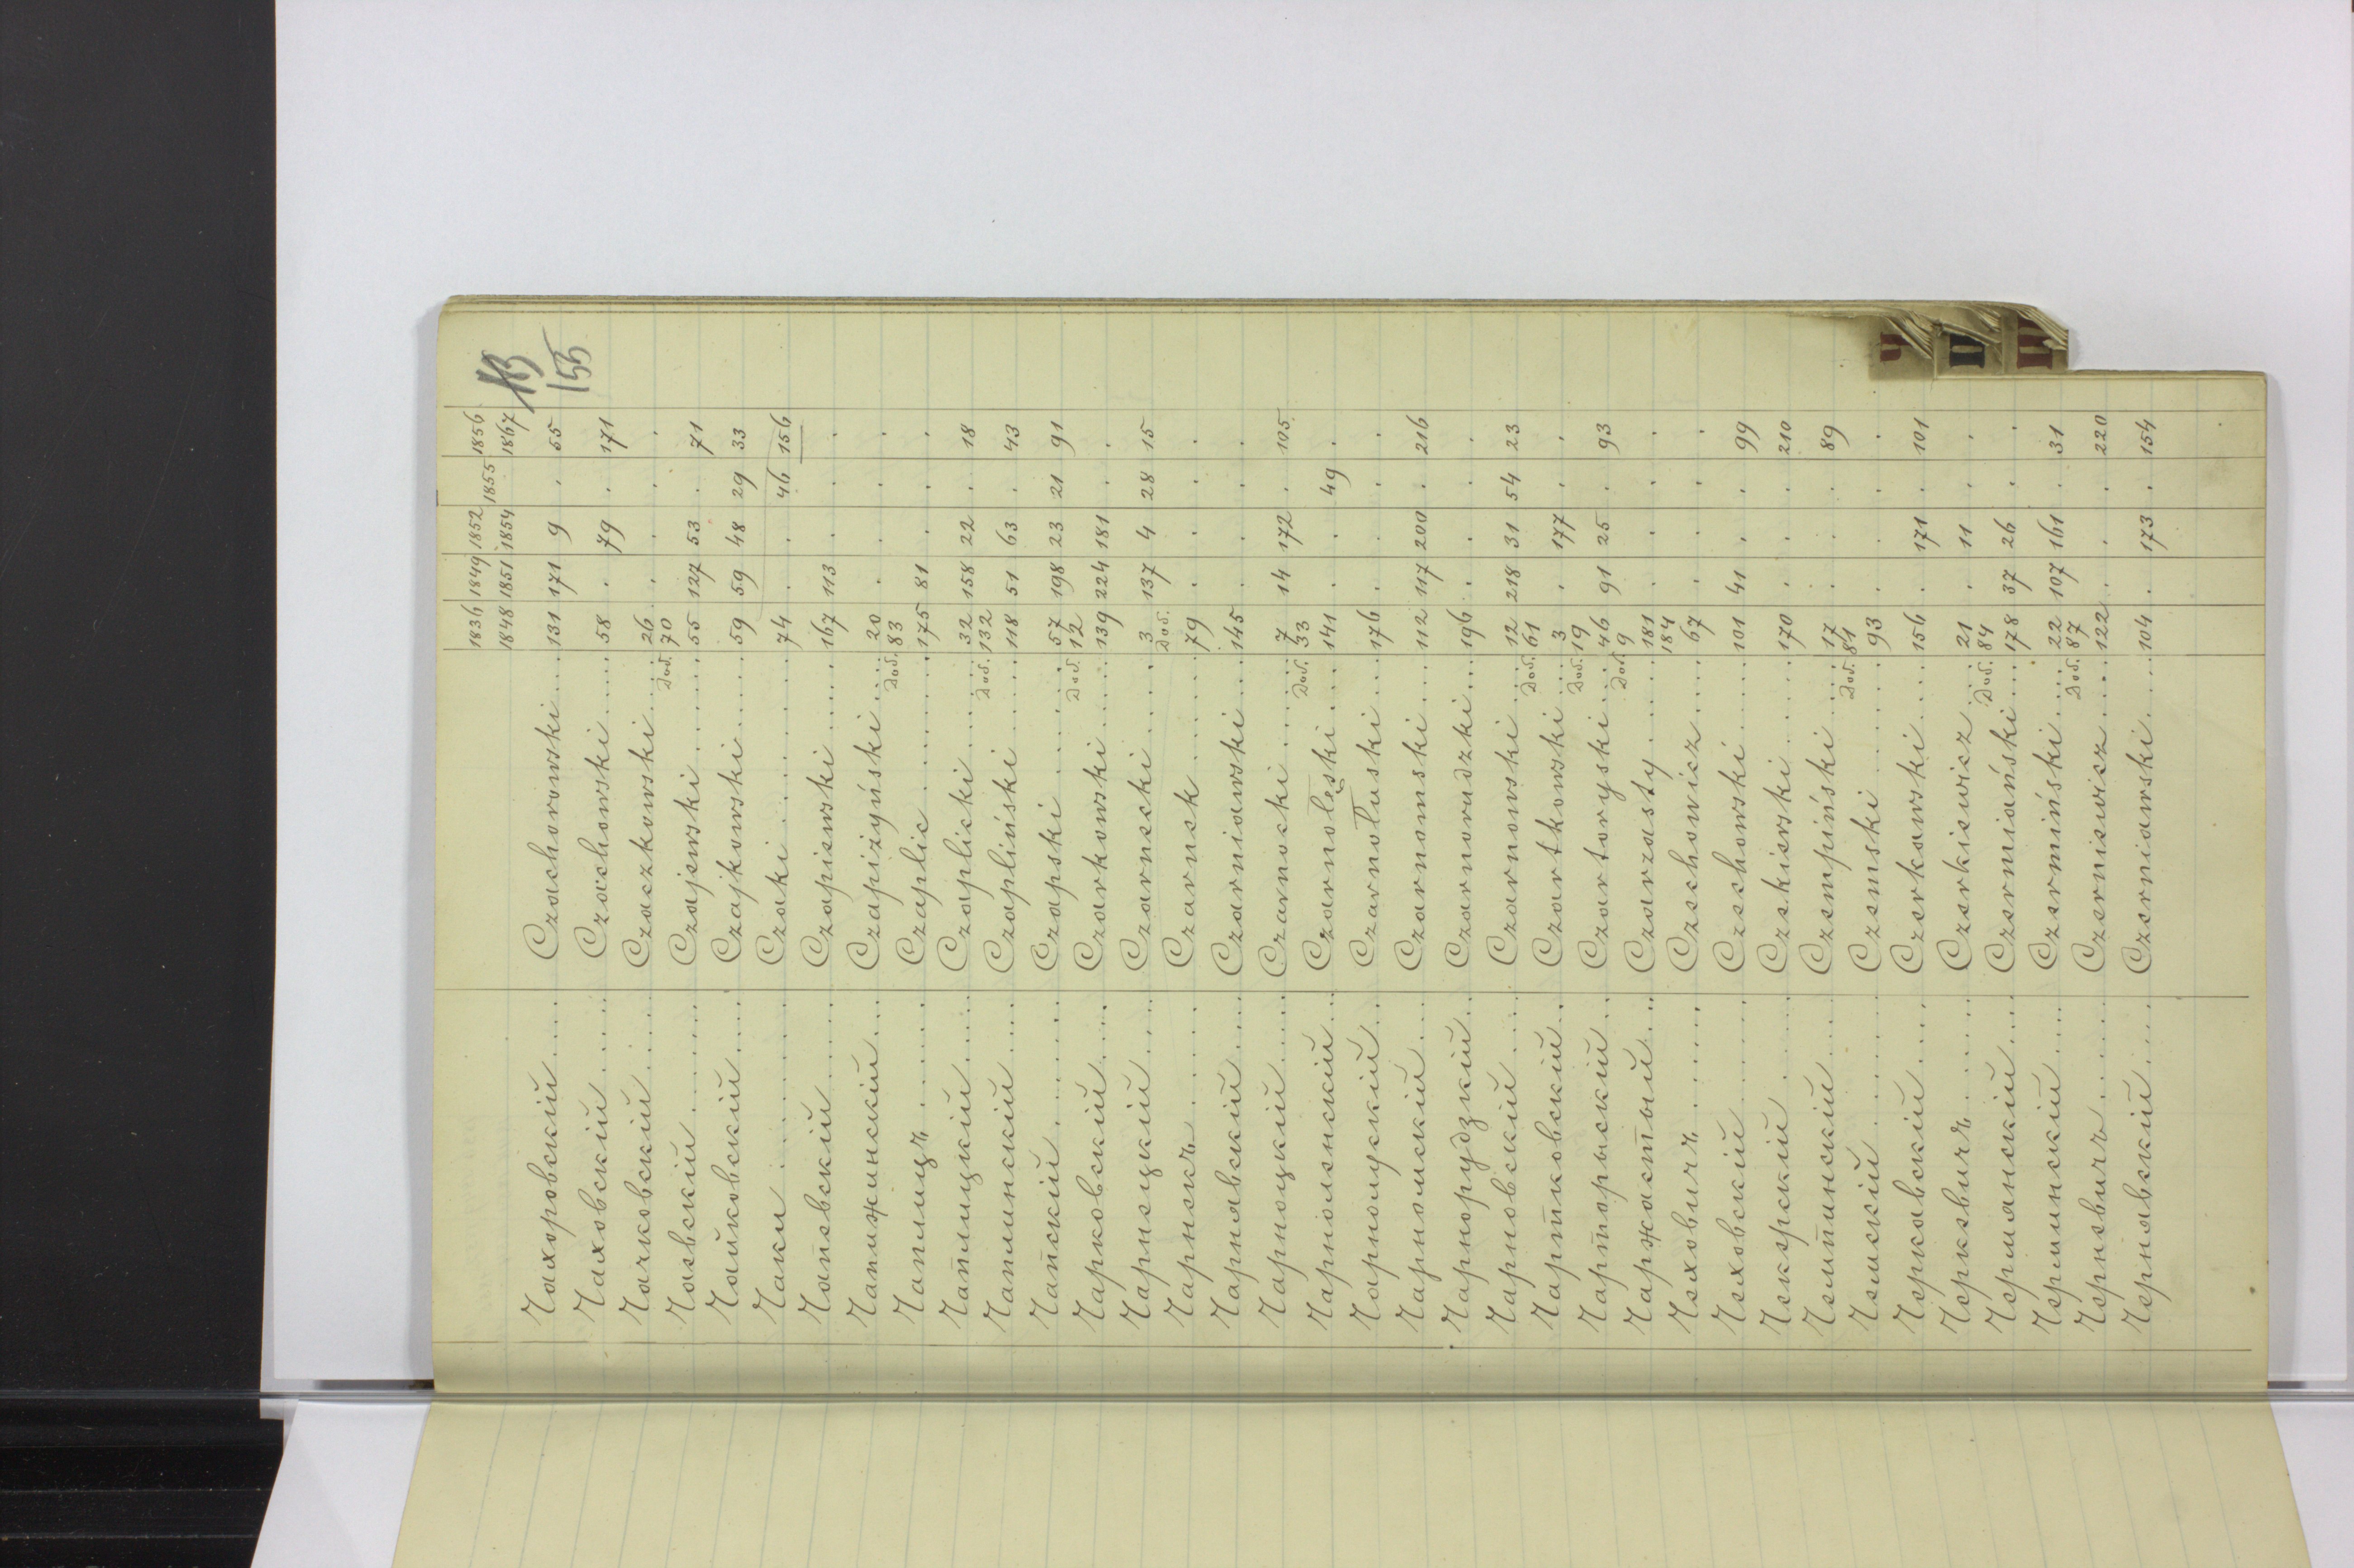 1836 1849 1852 1855 1856
1848 1851 1854 1867
155
Чахоровскій .... Czachorowski ... 131 171 9 . 55
Чаховскій .... Czachowski .... 58 . 79 . 171
Чачковскій .... Czaczkowski .... 26 . . . .
Дод. 70
Чаевскій ...... Czajewski ...... 55 127 53 . 71
Чайковскій .... Czajkowski ..... 59 59 48 29 33
Чаки ........ Czaki ........ 74 . . 46 156
Чапевскій ..... Czapiewski .... 167 113 . . .
Чапижинскій ... Czapiżyński .... 20 . . . .
Дод. 83
Чаплицъ ...... Czaplic ....... 175 81 . . .
Чаплицкій .... Czaplicki ..... 32 158 22 . 18
Дод. 132
Чаплинскій .... Czapliński .... 118 51 63 . 43
Чапскій ...... Czapski ...... 57 198 23 21 91
Дод. 12
Чарковскій .... Czarkowski .... 139 224 181 . .
Чарнецкій .... Czarnecki ..... 3 137 4 28 15
Дод.
Чарнекъ ...... Czarnek ...... 79 . . . .
Чарнявскій .... Czarniawski ... 145 . . . .
Чарноцкій .... Czarnocki ..... 7 14 172 . 105
Дод. 33
Чарноленскій ... Czarnolęski ... 141 . . 49 .
Чарнолускій ... Czarnołuski ... 176 . . . .
Чарномскій .... Czarnomski .... 112 117 200 . 216
Чарнорудзкій .. Czarnorudzki ... 196 . . . .
Чарновскій .... Czarnowski .... 12 218 31 54 23
Дод. 61
Чартковскій .. Czartkowski ... 3 . 177 . .
Дод. 19
Чарторыскій .. Czartoryski ... 46 91 25 . 93
Дод. 9
Чаржастый ... Czarzasty ..... 181 . . . .
184
Чеховичъ ...... Czechowicz .... 67 . . . .
Чеховскій ..... Czechowski ..... 101 41 . . 99
Чекерскій ..... Czekierski ..... 170 . . . 210
Чемпинскій .... Czempiński .... 17 . . . 89
Дод. 84
Чемскій ...... Czemski ...... 93 . . . .
Черкавскій .... Czerkawski .... 156 . 171 . 101
Черкевичъ ..... Czerkiewicz ... 21 . 11 . .
Дод. 84
Черманскій .... Czermiański ... 178 37 26 . .
Черминскій .... Czermiński .... 22 107 161 . 31
Дод. 87
Черневичъ ..... Czerniewicz .... 122 . . . 220
Чернявскій .... Czerniawski .... 104 . 173 . 154
Ч